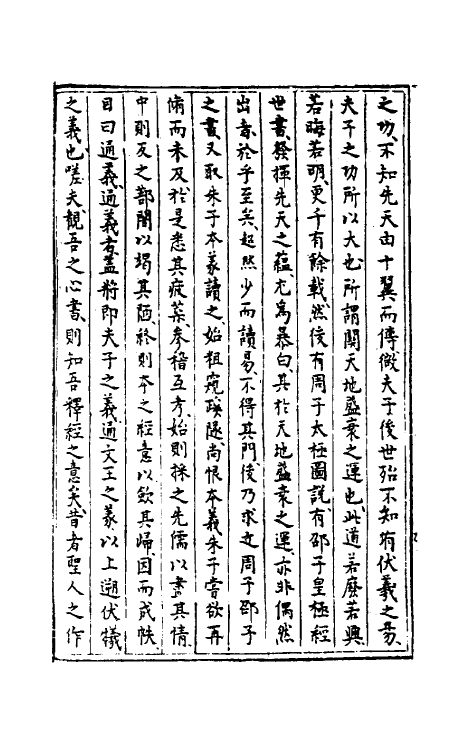 之功不知先天由十翼而傳微夫子後世殆不知有伏羲之易
夫子之功所以大也所謂關天地盛衰之運也此道若廢若興
若晦若明更千有餘載然後有周子太極圖說有邵子皇極經
世書發揮先天之蘊尤為暴白其於天地盛衰之運亦非偶然
出者於乎至矣超然少而讀易不得其門後乃求之周子邵子
之書又取朱子本義讀之始粗窺蹊隧尚恨本義朱子嘗欲再
脩而未及於是悉其疲策參稽互考始則採之先儒以盡其情
中則反之部闇以竭其陋終則本之經意以歛其歸因而成帙
目曰通義通義者蓋將即夫子之義通文王之彖以上遡伏犧
之義也嗟夫觀吾之心書則知吾釋經之意矣昔者聖人之作